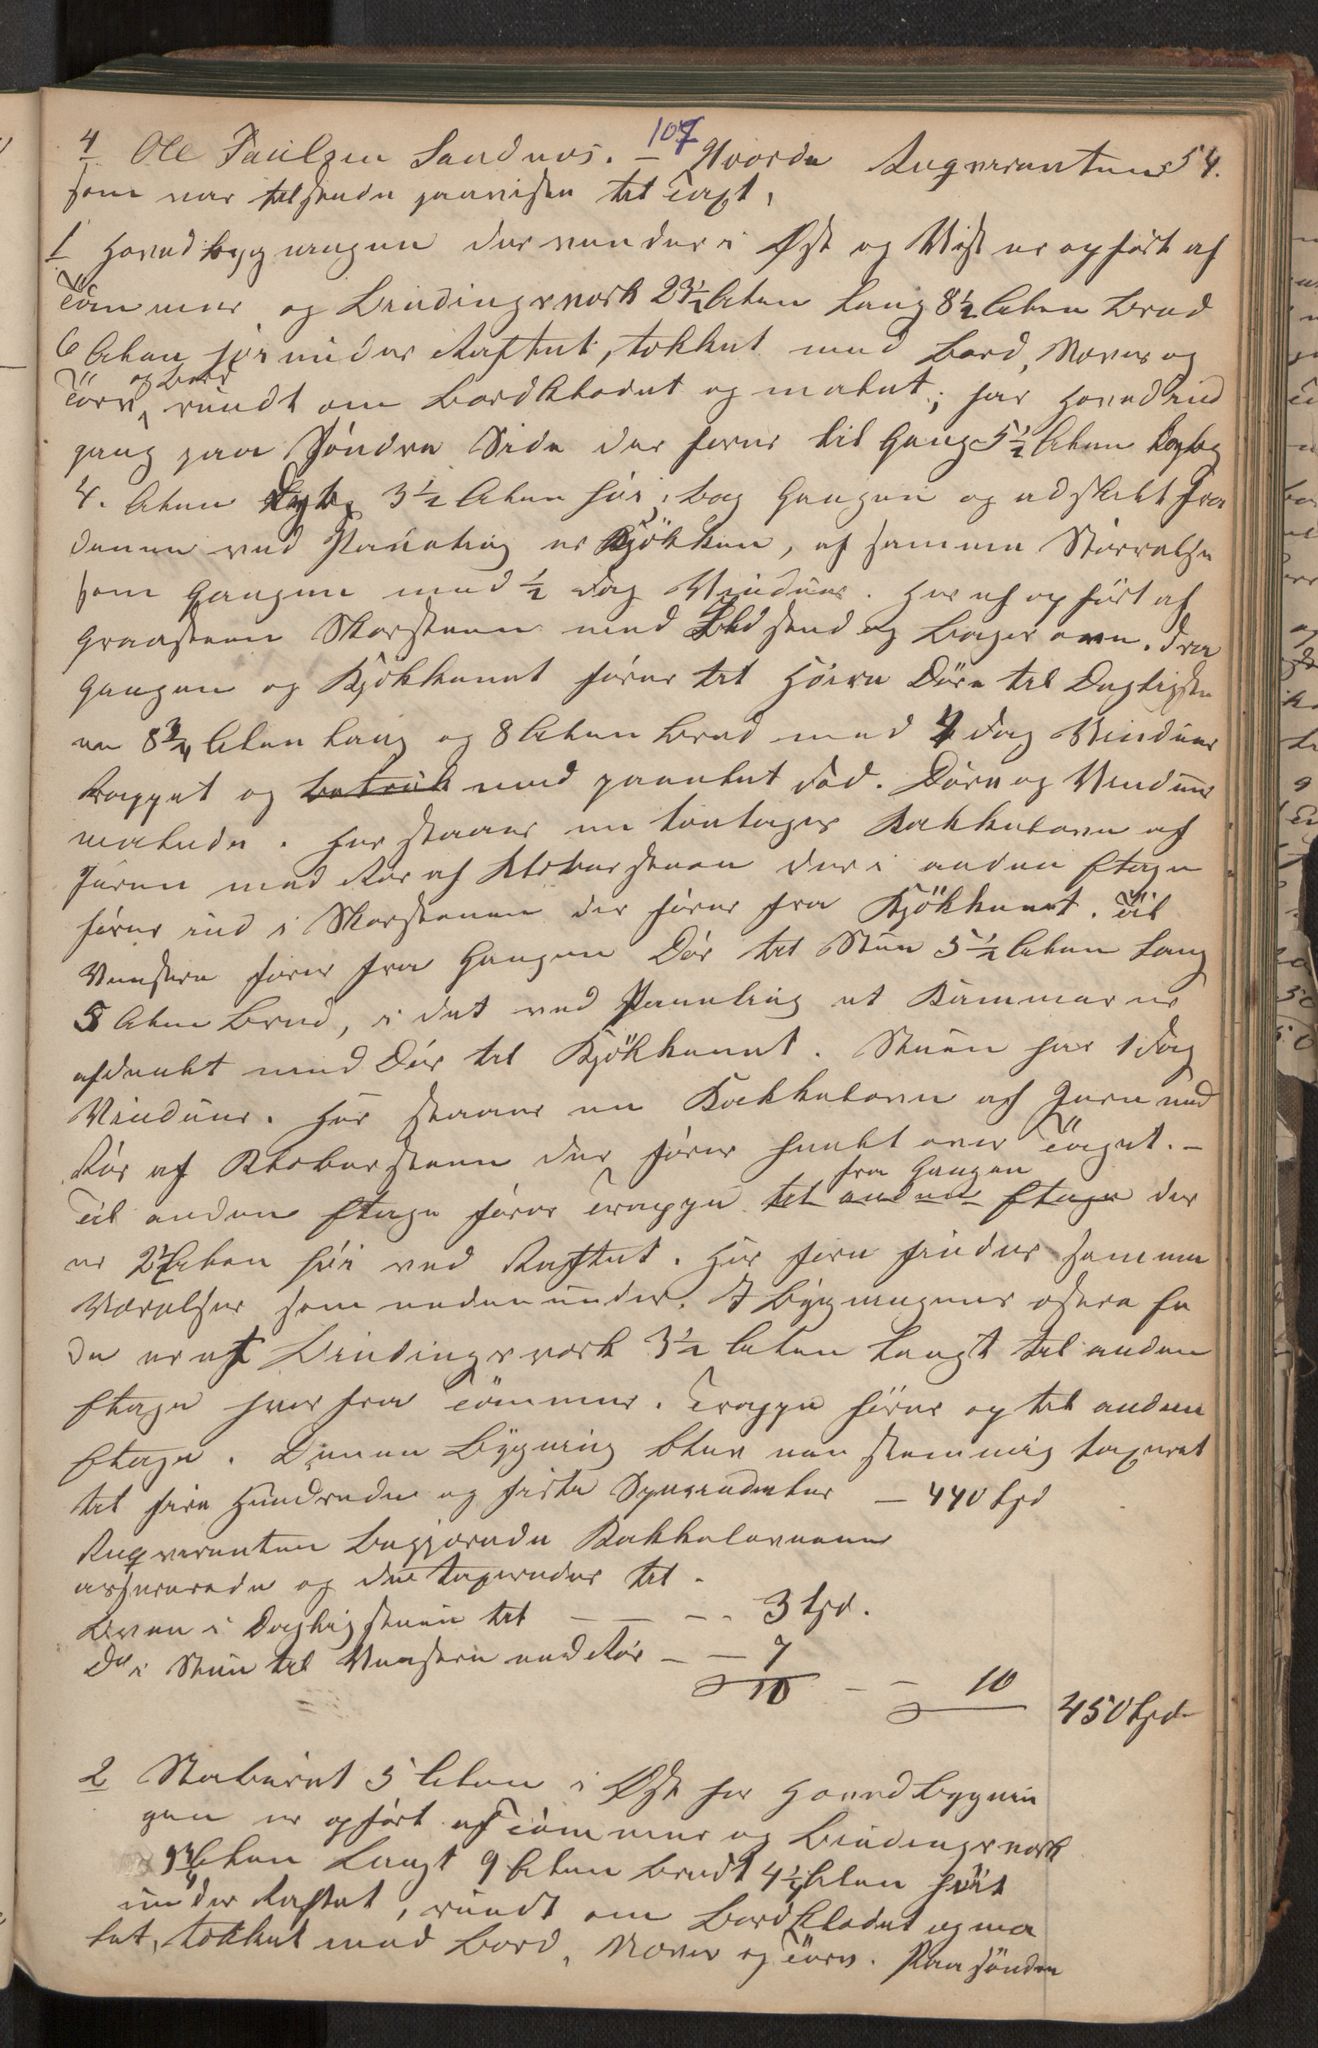 107
54.
4/ Ole Paulsen Sandnes. — Gaarden Reqverenten
som var tilstede paaviste til Taxt,
1 Hovedbygningen der vender i Øst og Vest er opført af
Tømmer og Bindingsverk 23½ Alen Lang 8½ Alen Bred
6 Alen høi under Raftet, tekket med Bord, Næver og
Törv, og Bord rundt om Bordklædet og malet; har Hovedind
gang paa søndre Side der fører til Gang 5½ Alen
4. Alen Dyb, 3½ Alen høi, bag Gangen og adskilt fra
denne ved Paneling er Kjökken, af samme Størrelse
som Gangen med ½ Fag Vinduer. Her er opført af
Graasteen Skorsteen med Ildsted og Bagerovn. Fra
Gangen og Kjökkenet fører til Høire Døre til Dagligstu
en 8¾ Alen Lang og 8 Alen Bred med 4 Fag Vinduer
Trappet og betrukt med panelet Fod. Døre og Vinduer
malede. Her staaer en toetages Kakkelovn af
Jern med Rør af Klebersteen der i anden Etage
fører ind i Skorstenen der fører fra Kjökkenet. Til
Venstre fører fra Gangen Dør til Stue 5½ Alen Lang
5 Alen Bred, i det ved Paneling et Kammer er
afdeelt med Dør til Kjökkenet. Stuen har 1 Fag
Vinduer. Her staaer en Kakkelovn af Jern med
Rør af Klebersteen der fører heelt over Taget. —
Til anden Etage fører Trappe til anden Etage fra Gangen der
er 2½ Alen høi ved Raftet. Her finder samme
Værelser som nedenunder. I Bygningens østre En
de er af Bindingsverk 3½ Alen Langt til anden
Etage hvorfra Tömmer. Trappe fører op til anden
Etage. Denne Bygning blev eenstemmig taxeret
til fire Hundrede og firti Speciedaler — 440 Spd
Reqverenten Begjærede Kakkelovnene
assurerede og die taxeredes til.
Ovnen i Dagligstuen til — — — 3 Spd.
Do i Stue til Venstre med Rør — — 7
10 — — 10
450 Spd
2 Stabburet 5 Alen i Øst for Hovedbygnin
gen er opført af Tömmer og Bindingsverk
Alen Langt 9 Alen Bredt 4¼ Alen høit
under Raftet, rundt om Bordklædet og ma
let, tekket med Bord, Næver og Törv. Paa søndre